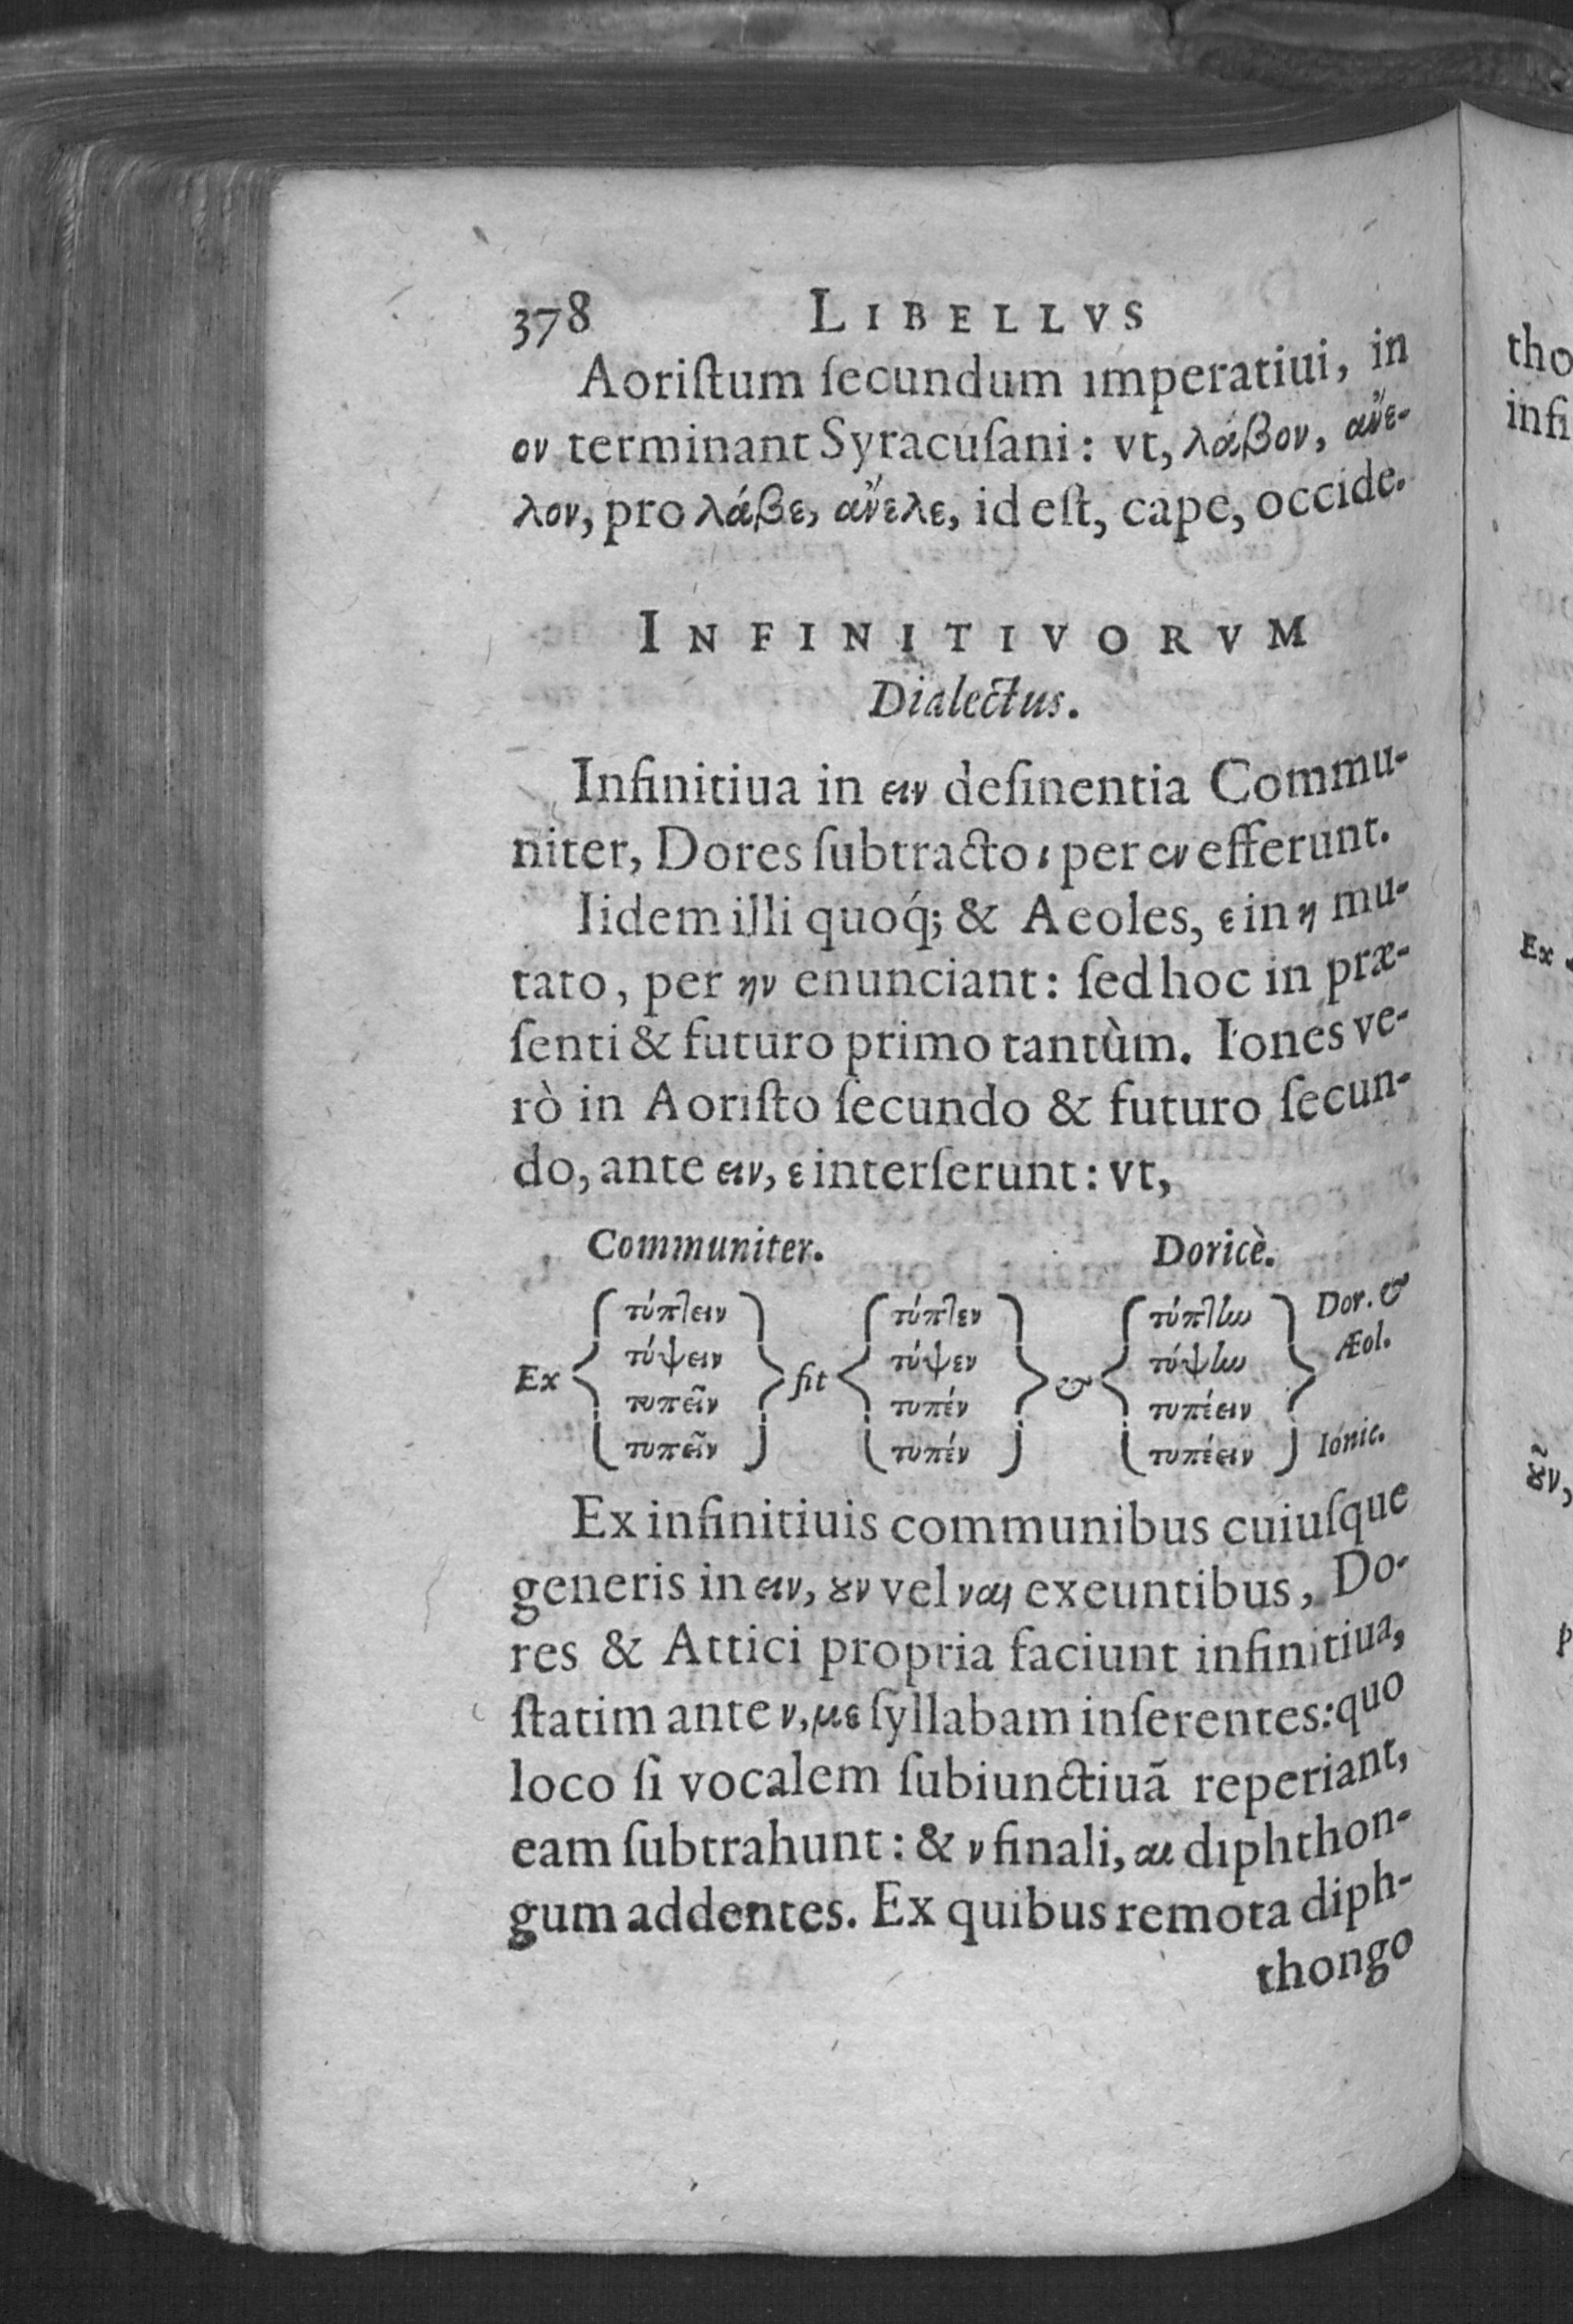 378 LIBELLVS
Aoriſtum ſecundum imperatiui, in
ον terminant Syracuſani: vt, λάβον, ἄνε-
λον, pro λάβε, ἄνελε, id eſt, cape, occide.
INFINITIVORVM
Dialectus.
Infinitiua in ειν deſinentia Commu-
niter, Dores ſubtracto ι per εν efferunt.
Iidem illi quoq́; & Aeoles, ε in η mu-
tato, per ην enunciant: ſed hoc in præ-
ſenti & futuro primo tantùm. Iones ve-
rò in Aoriſto ſecundo & futuro ſecun-
do, ante ειν, ε interſerunt: vt,
Communiter. Doricè.
τύπτειν τύπτεν τύπτην Dor. &
τύψειν τύψεν τύψην Æol.
Ex fit &
τυπεῖν τυπέν τυπέειν
τυπεῖν τυπέν τυπέειν Ionic.
Ex infinitiuis communibus cuiuſque
generis in ειν, ȣν vel ναι exeuntibus, Do-
res & Attici propria faciunt infinitiua,
ſtatim ante ν, με ſyllabam inſerentes: quo
loco ſi vocalem ſubiunctiuã reperiant,
eam ſubtrahunt: & ν finali, αι diphthon-
gum addentes. Ex quibus remota diph-
thongo
tho
infi
Ex
ȣ͂ν,
p